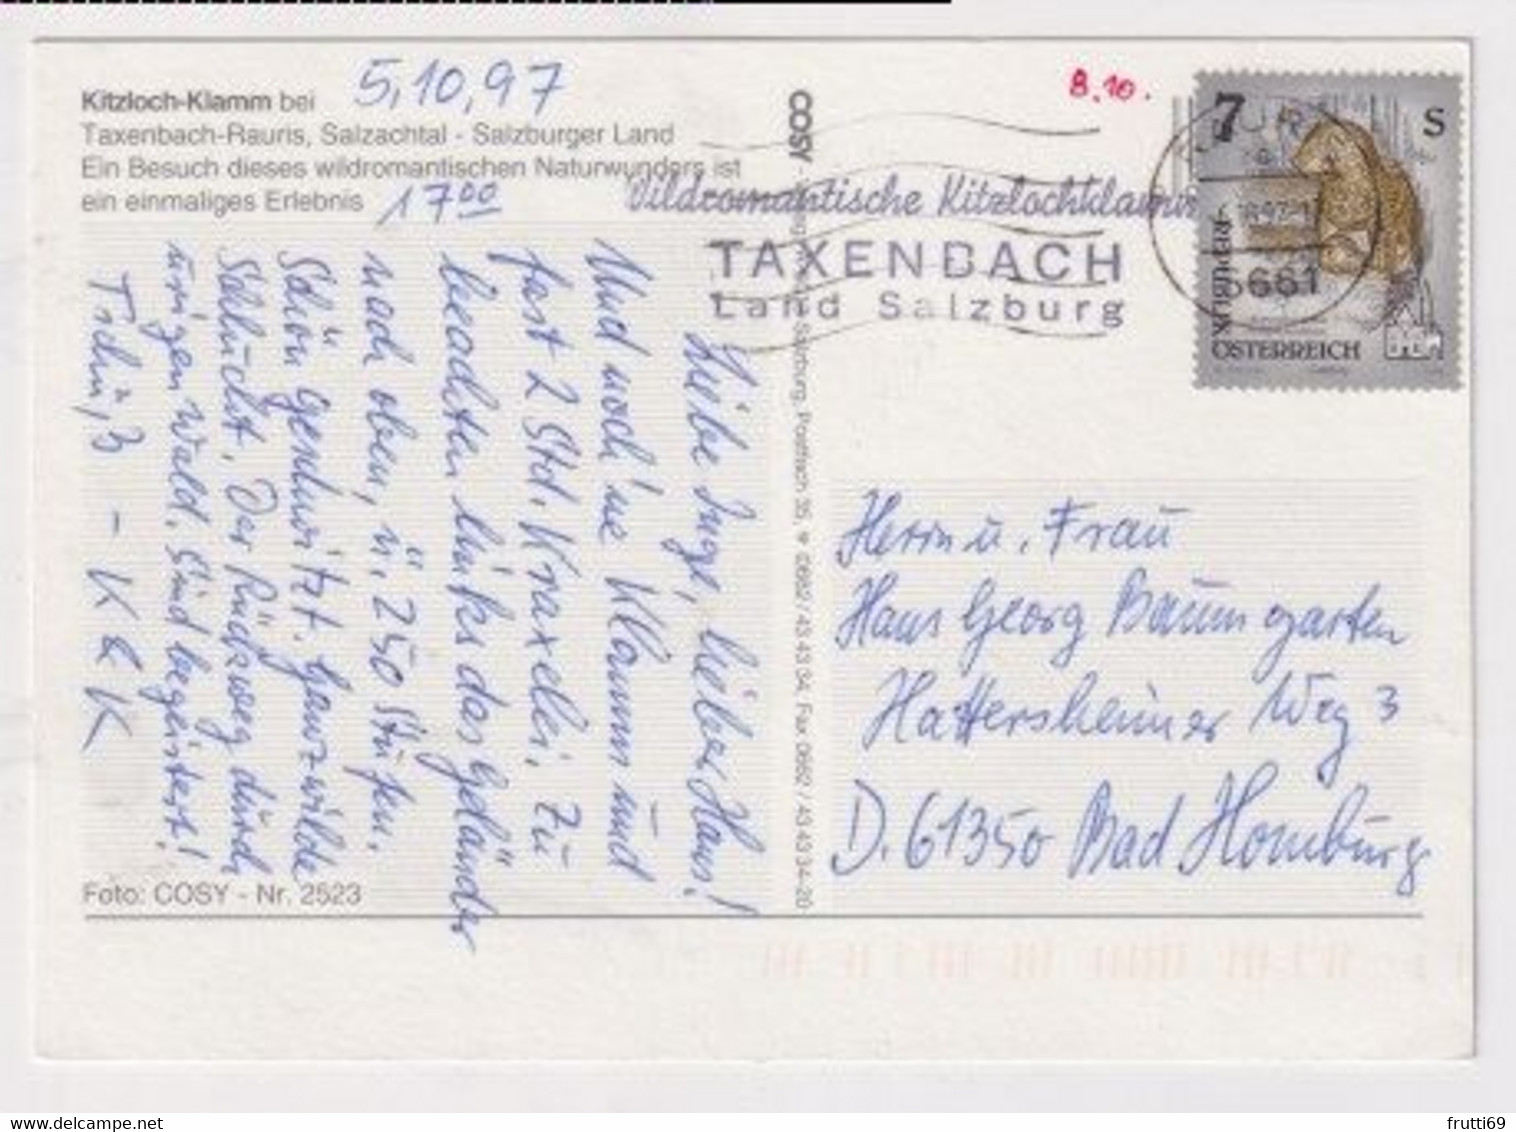 5,10,97
8.10.
Kitzloch-Klamm bei
Taxenbach-Rauris, Salzachtal - Salzburger Land
Ein Besuch dieses wildromantischen Naturwunders ist
ein einmaliges Erlebnis
17⁰⁰
Liebe Inge, lieber Hans!
Und noch 'ne Klamm und
fast 2 Std. Kraxelei. Zu
beachten links das Geländer
nach oben, ü. 250 Stufen.
Schön geschwitzt. Ganz wilde
Schlucht. Der Rückweg durch
urigen Wald. Sind begeistert!
Tschüß - K & K
Foto: COSY - Nr. 2523
COSY
Salzburg, Postfach 35, 0662/43 43 34, Fax 0662/43 43 34-20
Wildromantische Kitzlochklamm
TAXENBACH
Land Salzburg
5661
7 S
REPUBLIK
ÖSTERREICH
Herrn u. Frau
Hans Georg Baumgarten
Hattersheimer Weg 3
D. 61350 Bad Homburg
frutti69